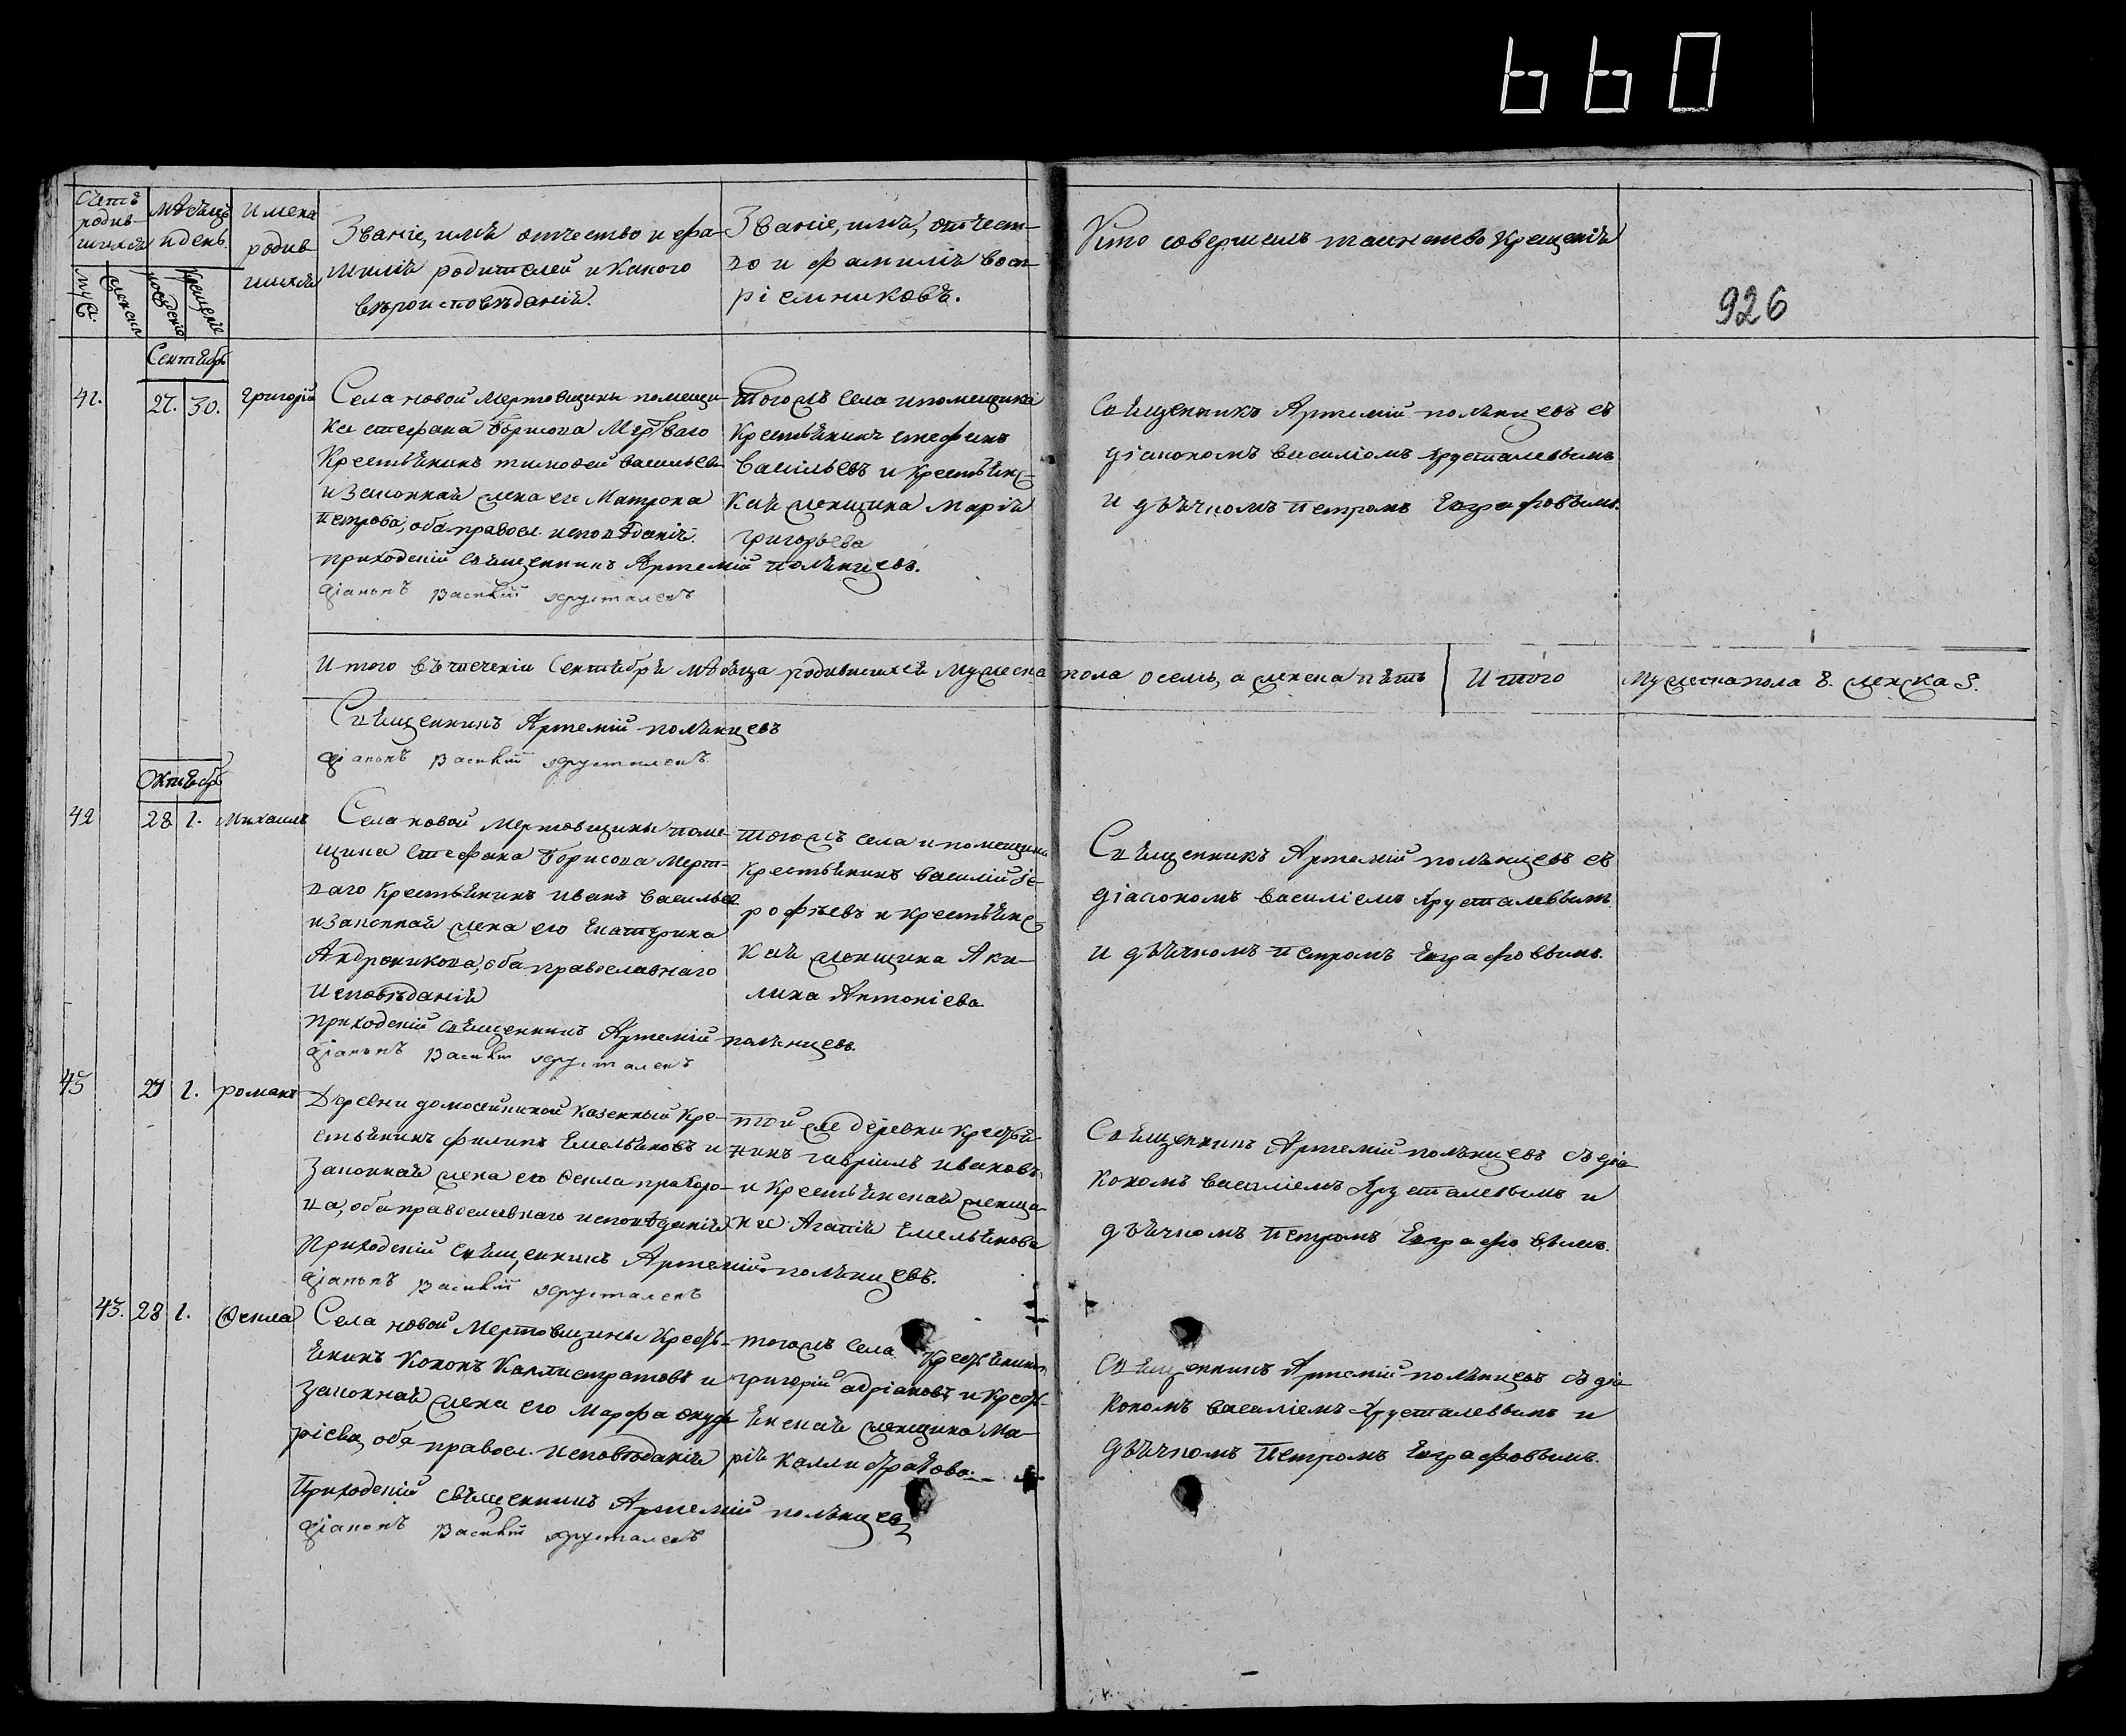 660
926
Счетъ родив-шихся
Мѣсяцъ и день.
Имена родив-шихся
Званіе, имя отчество и фа-
милія родителей и какого
вѣроисповѣданія.
Званіе, имя, отчест-
во и фамилія восп-
ріемниковъ.
Кто совершалъ таинство Крещенія
муж.
женск.
рожденіе
Крещеніе
Сентябрь
41.
27.
30.
Григорій
Села новой Мертовщины помещи-
ка стефана Борисова Мертваго
Крестьянинъ тимофей васильевъ
и законная жена его Матрона
петрова, оба правосл. исповѣданія.
приходскій священникъ Артемій полянцевъ.
діаконъ василій хрусталевъ
тогожъ села и помещика
Крестьянинъ стефанъ
Васильевъ и крестьянс-
кая женщина Марія
григорьева
Священникъ Артемій полянцевъ съ
діакономъ василіемъ хрусталевымъ
и дьячкомъ петромъ Евграфовымъ.
Итого въ теченіи Сентября мѣсяца родившихся мужеска пола осемь, а женска пять
Итого
Мужеска пола 8. женска 5.
Священникъ Артемій полянцевъ
діаконъ василій хрусталевъ
Октябрь
42
28
1.
Михаилъ
Села новой Мертовщины поме-
щика Стефана Борисова Мерт-
ваго Крестьянинъ иванъ васильевъ
и законная жена его Екатерина
Андроникова, оба православнаго
Исповѣданія
приходскій священникъ Артемій полянцевъ.
діаконъ василій хрусталевъ
тогожъ села и помещика
Крестьянинъ василій іе-
рофѣевъ и крестьянс-
кая женщина Аки-
лина Антоніева
Священникъ Артемій полянцевъ съ
діакономъ василіемъ хрусталевымъ
и дьячкомъ петромъ Евграфовымъ.
43
1.
романъ
Деревни казенный Кре-
стьянинъ филипъ Емельяновъ и
Законная жена его Фекла прохоро-
ва, оба православнаго исповѣданія
приходскій священникъ Артемій полянцевъ.
діаконъ василій хрусталевъ
той же деревни крестья-
нинъ гавріилъ ивановъ
и Крестьянская женщи-
на Агапія Емельянова
Священникъ Артемій полянцевъ съ діа-
кономъ василіемъ хрусталевымъ и
дьячкомъ петромъ Евграфовымъ.
43.
28
1.
Фекла
Села новой Мертовщины Кресть-
янинъ Кононъ Каллистратовъ и
законная жена его Марфа онуф-
ріева, оба правосл. исповѣданія
Приходскій священникъ Артемій полянцевъ
діаконъ василій хрусталевъ
тогожъ села Крестьянинъ
григорій адріановъ и кресть-
янская женщина Ма-
рія каллистратова.
Священникъ Артемій полянцевъ съ діа-
кономъ василіемъ хрусталевымъ и
дьячкомъ петромъ Евграфовымъ.